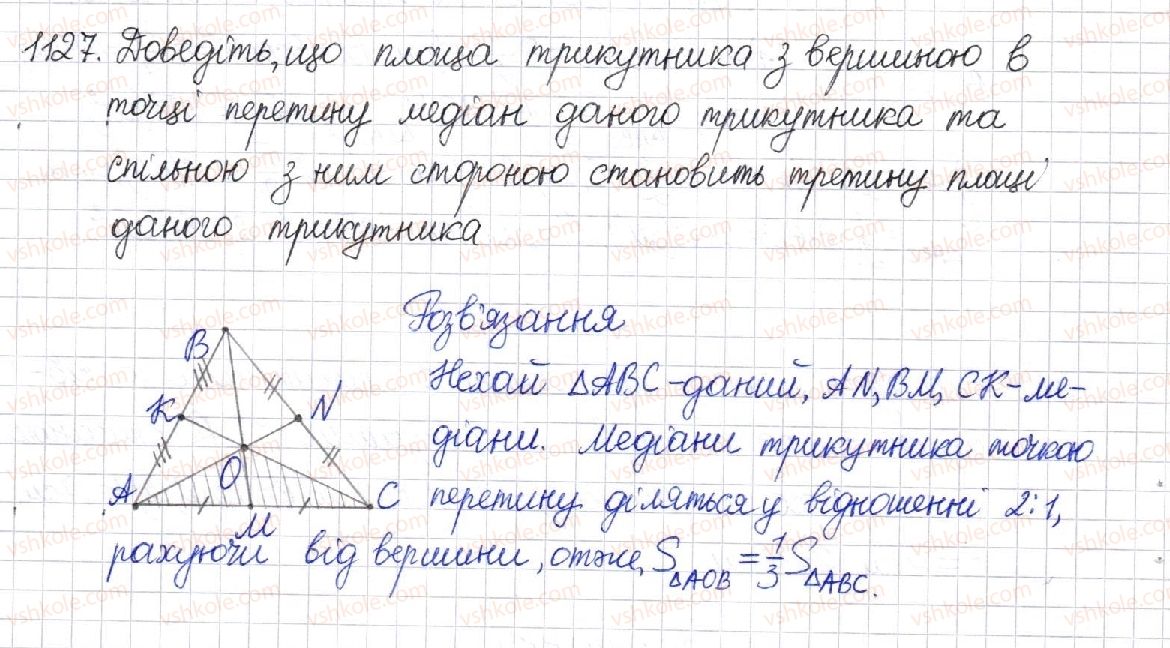 1127. Доведіть, що площа трикутника з вершиною в
точці перетину медіан даного трикутника та
спільною з ним стороною становить третину площі
даного трикутника
Розв'язання
B
Нехай △ABC-даний, AN, BM, CK-ме-
K
N
діани. Медіани трикутника точкою
A
O
C
перетину діляться у відношенні 2:1,
M
рахуючи від вершини, отже, S△AOB = 1/3 S△ABC.
vshkole.com